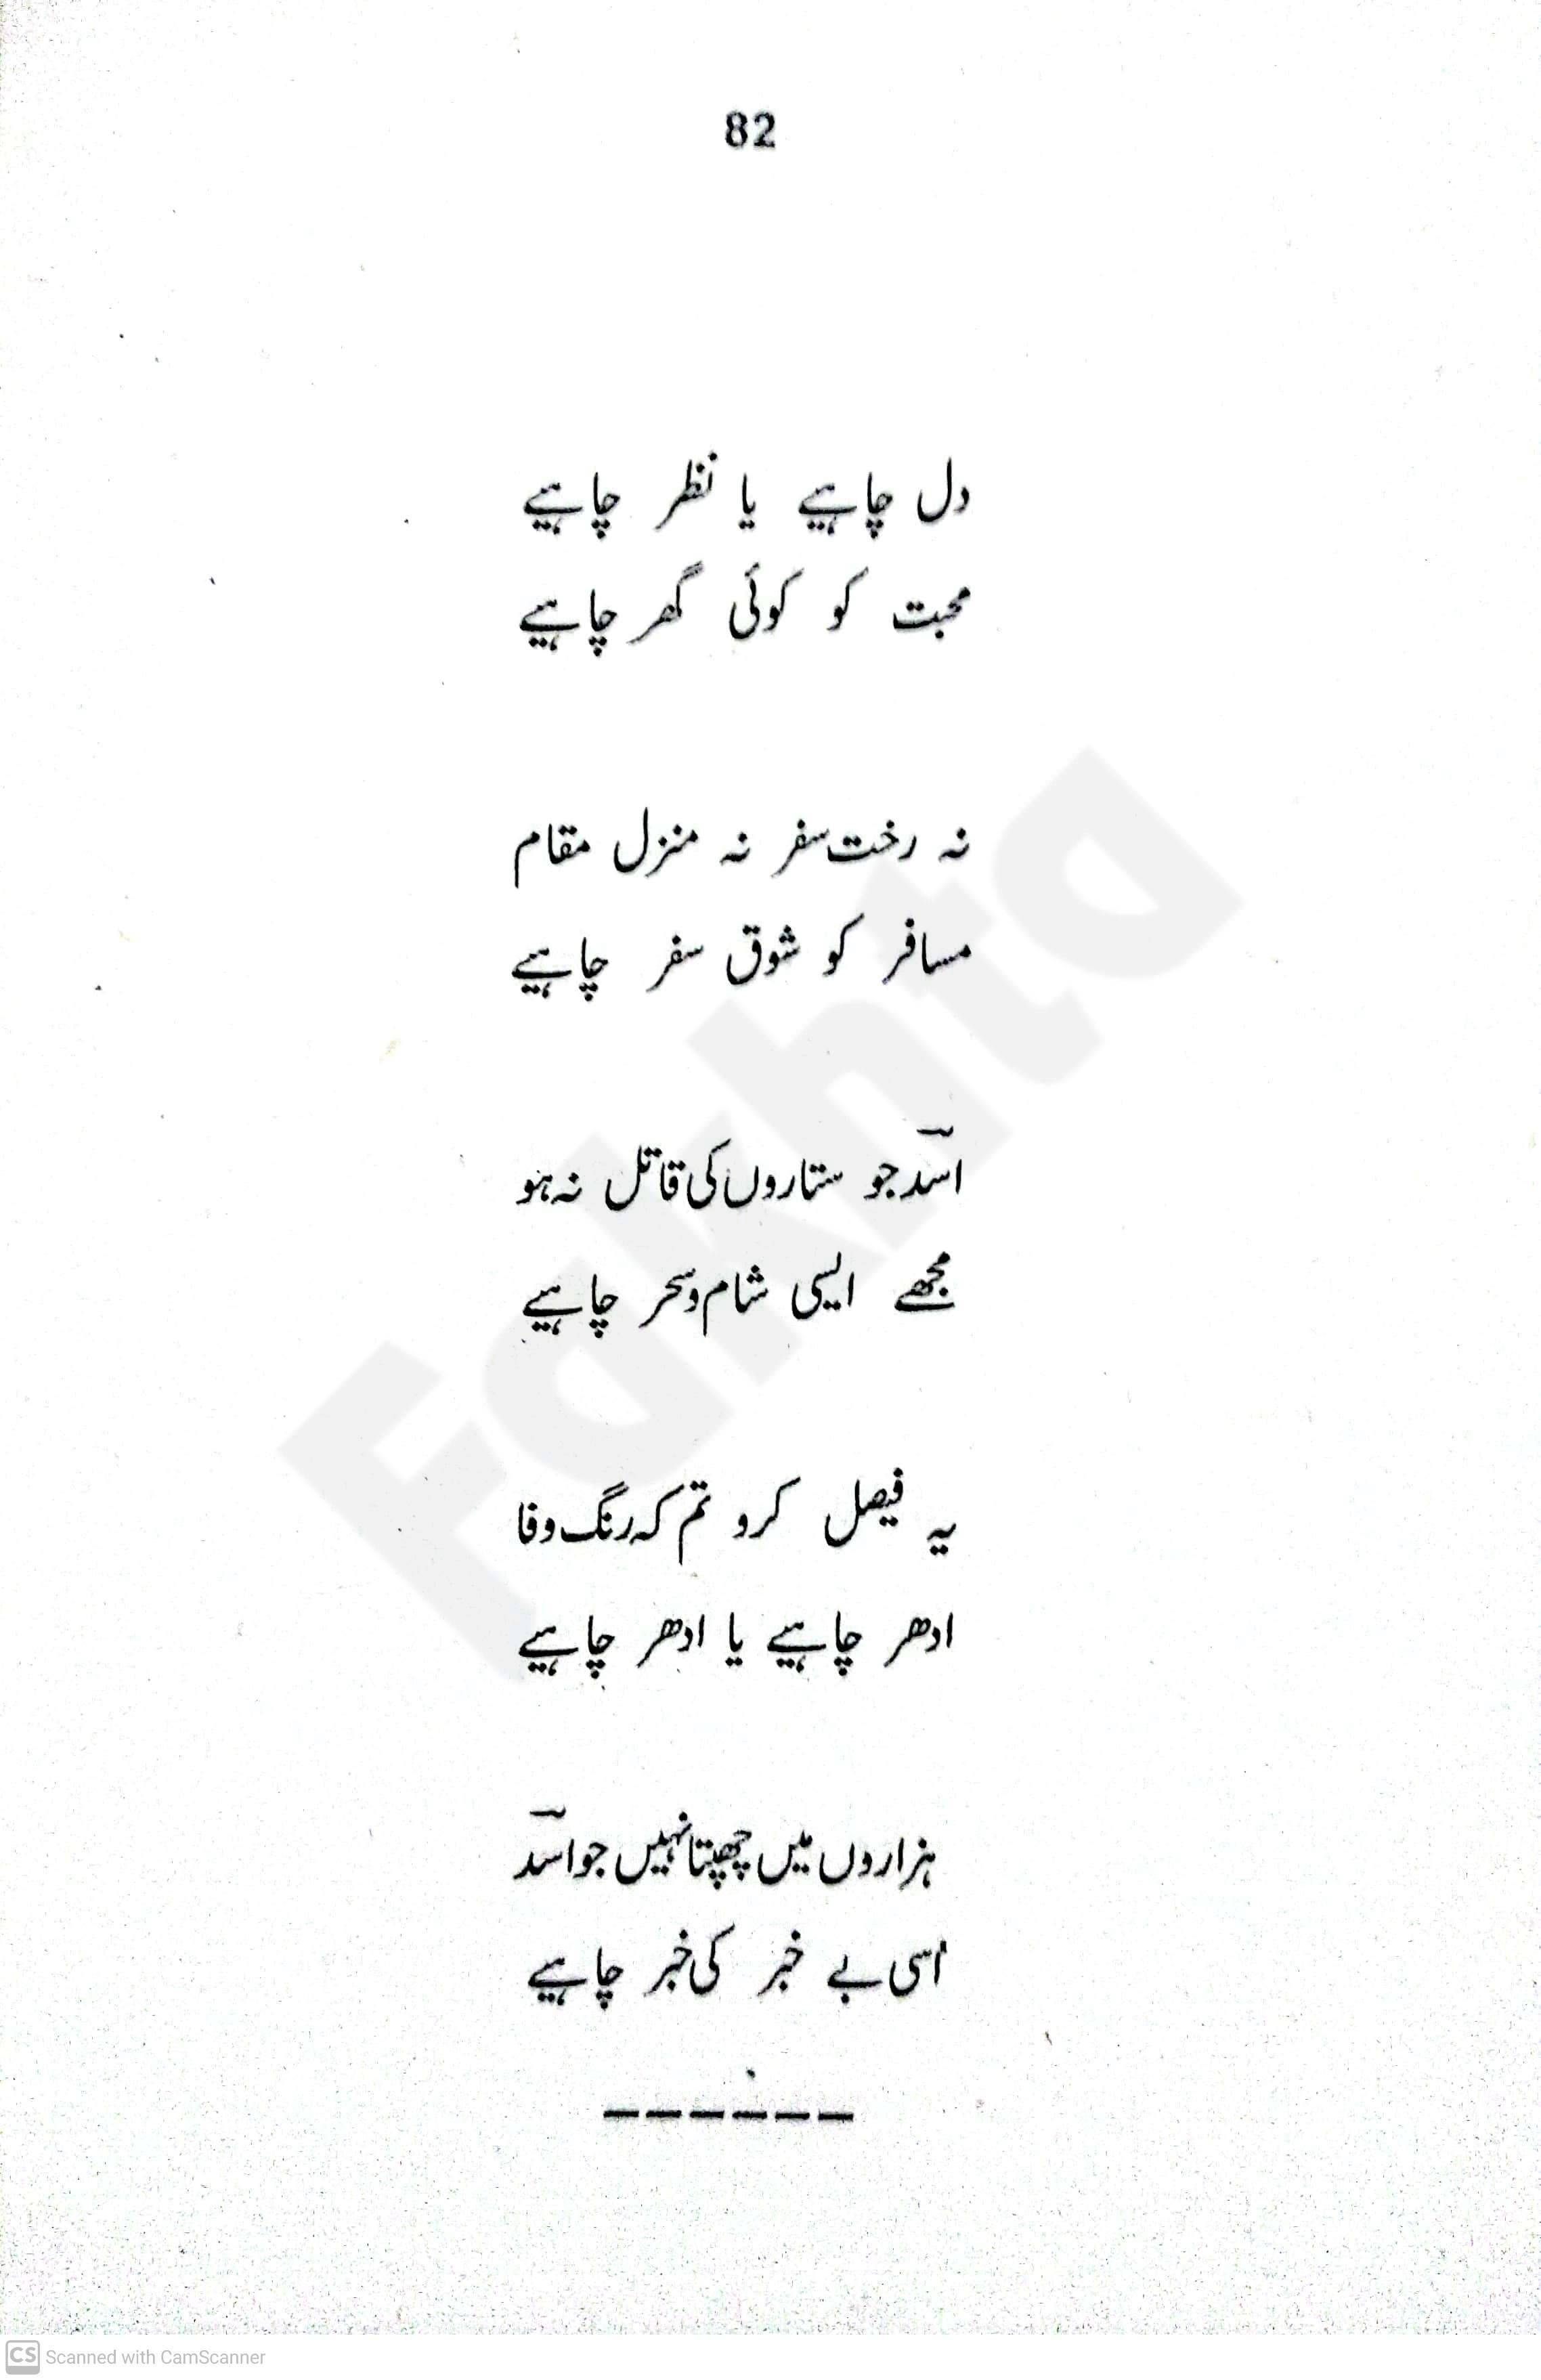 82
دل چاہیے یا نظر چاہیے
محبت کو کوئی گھر چاہیے
نہ رخت سفر نہ منزل مقام
مسافر کو شوق سفر چاہیے
اسؔد جو ستاروں کی قاتل نہ ہو
مجھے ایسی شام و سحر چاہیے
یہ فیصل کرو تم کہ رنگ وفا
ادھر چاہیے یا ادھر چاہیے
ہزاروں میں چھپتا نہیں جو اسؔد
اُسی بے خبر کی خبر چاہیے
Fakhta
CS Scanned with CamScanner